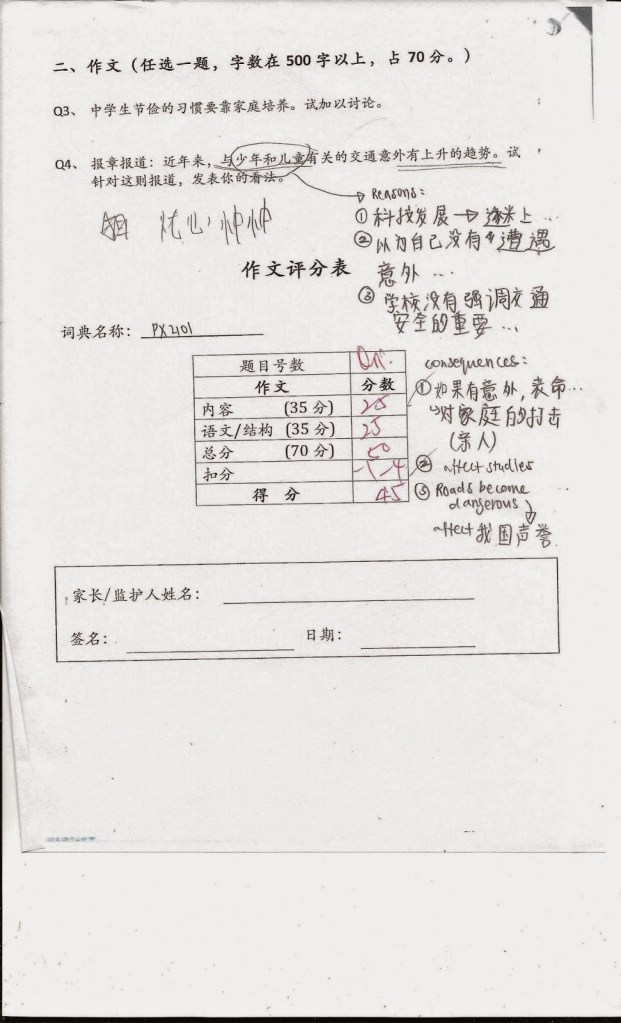 二、作文（任选一题，字数在 500 字以上，占 70 分。）
Q3、 中学生节俭的习惯要靠家庭培养。试加以讨论。
Q4、 报章报道：近年来，与少年和儿童有关的交通意外有上升的趋势。试
针对这则报道，发表你的看法。
Reasons:
① 科技发展 → 迷上 ...
② 以为自己没有“遭遇
意外 ...
③ 学校没有强调交通
安全的重要 ...
忧心忡忡
作文评分表
词典名称： PX2101
题目号数 Q4
作文 分数
内容 (35 分) 25
语文/结构 (35 分) 25
总分 (70 分) 50
扣分
得 分 45
consequences:
① 如果有意外，丧命 ...
对家庭的打击
(亲人)
② affect studies
③ Roads become
dangerous
affect 我国声誉
家长/监护人姓名：
签名： 日期：